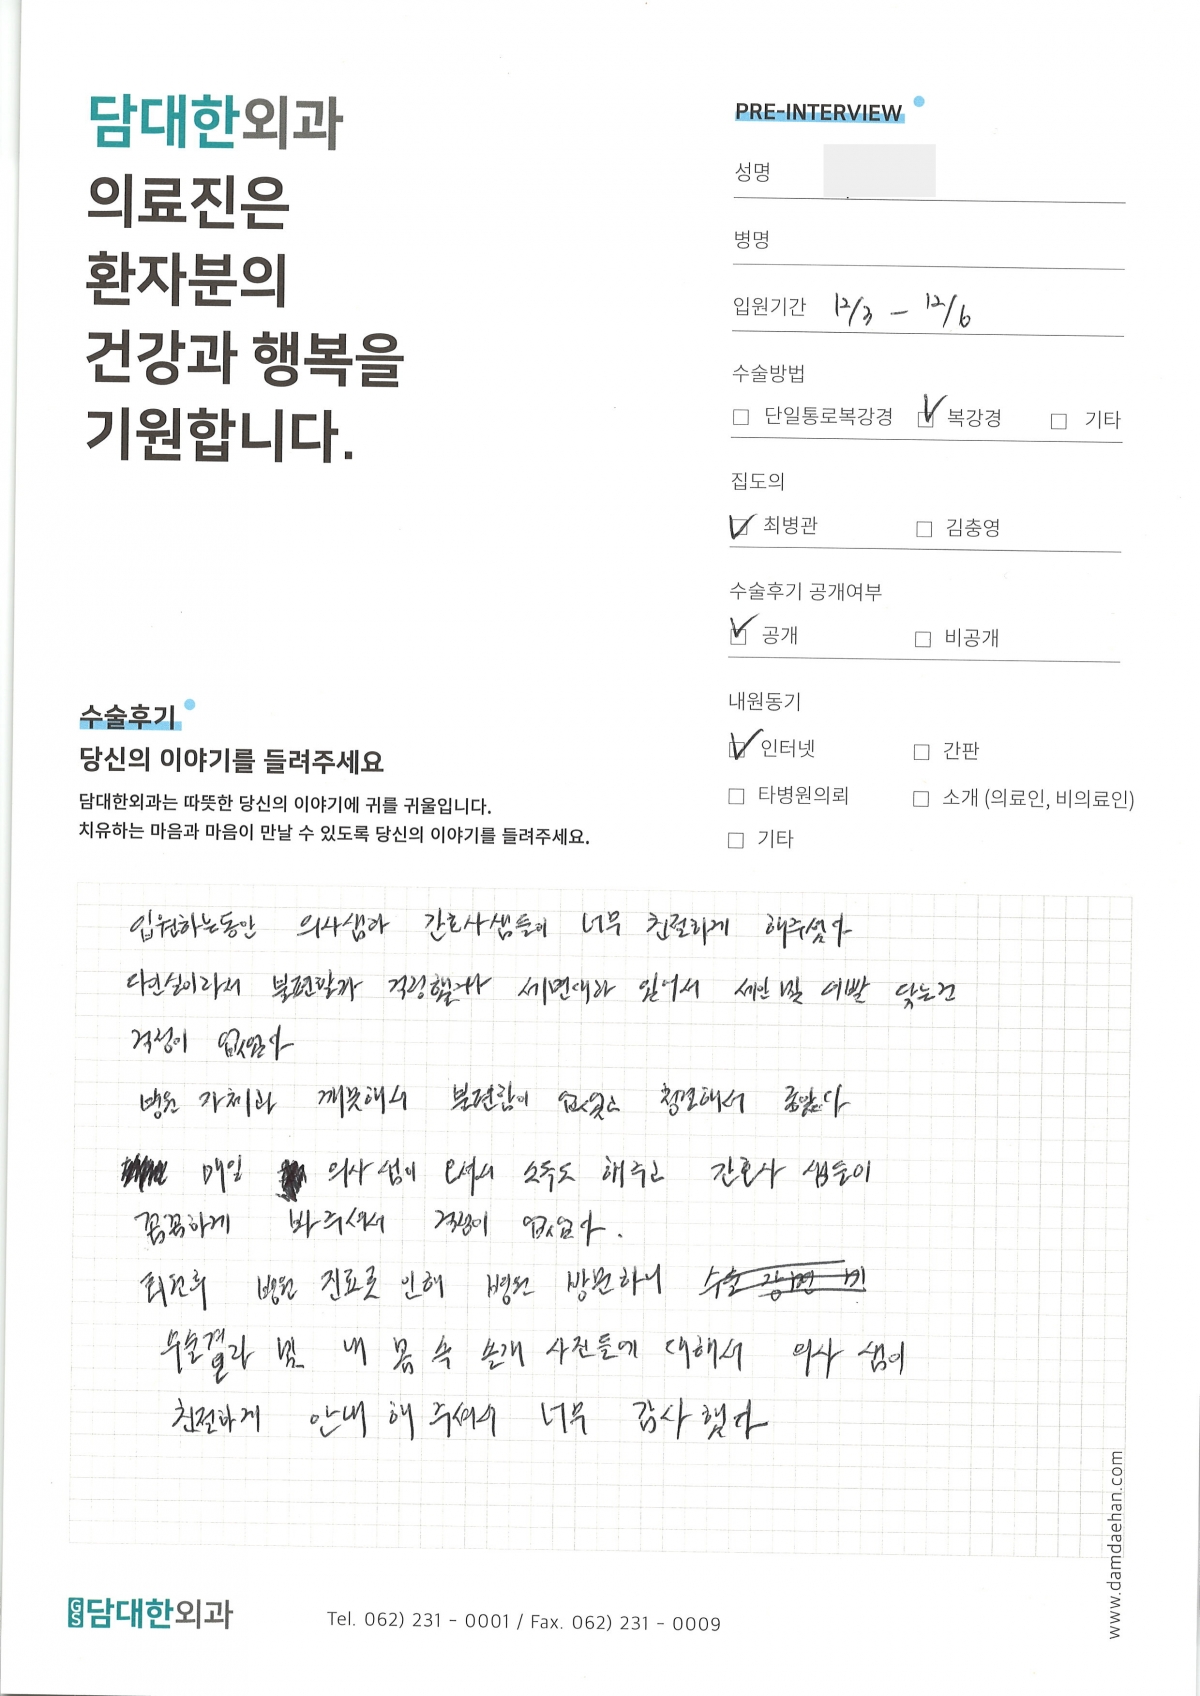 담대한외과
의료진은
환자분의
건강과 행복을
기원합니다.
PRE-INTERVIEW
성명
병명
입원기간 12/3 - 12/6
수술방법
단일통로복강경 복강경 기타
집도의
최병관 김충영
수술후기 공개여부
공개 비공개
내원동기
인터넷 간판
타병원의뢰 소개 (의료인, 비의료인)
기타
수술후기
당신의 이야기를 들려주세요
담대한외과는 따뜻한 당신의 이야기에 귀를 귀울입니다.
치유하는 마음과 마음이 만날 수 있도록 당신의 이야기를 들려주세요.
입원하는동안 의사샘과 간호사샘들이 너무 친절하게 해주셨다
다인실이라서 불편할까 걱정했으나 세면대가 있어서 세안 및 이빨 닦는건
걱정이 없었다
병원 자체가 깨끗해서 불편함이 없었고 청결해서 좋았다
매일 의사 샘이 오셔서 소독도 해주고 간호사 샘들이
꼼꼼하게 봐주셔서 걱정이 없었다.
퇴원후 병원 진료로 인해 병원 방문하니 수술
수술결과 및 내 몸 속 사진들에 대해서 의사 샘이
친절하게 안내 해 주셔서 너무 감사했다
GS 담대한외과
Tel. 062) 231 - 0001 / Fax. 062) 231 - 0009
www.damdaehan.com